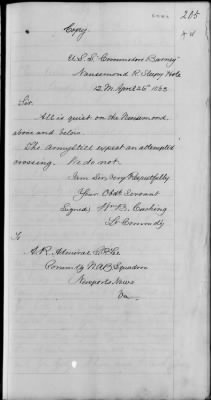 205
Copy.
U.S.S. Commodore Barney
Nansemond R. Sleepy Hole
12 M. April 25th 1863
Sir.
All is quiet on the Nansemond
above and below.
The Army still expect an attempted
crossing. We do not.
I am Sir, Very Respectfully
Your Obdt Servant
Signed) Wm B. Cushing
Lt Commdg
To
A.R. Admiral S.P. Lee
Commdg N.A.B. Squadron
Newports News
Va